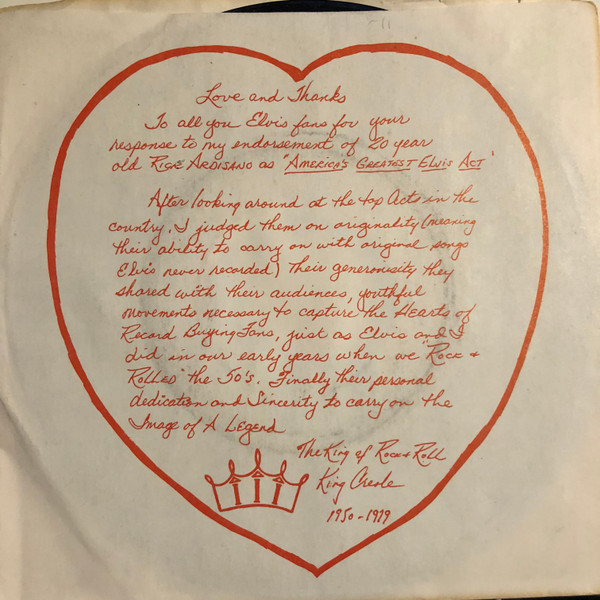 Love and Thanks
To all you Elvis fans for your
response to my endorsement of 20 year
old RICK ARDISANO as "AMERICA'S GREATEST ELVIS ACT"
After looking around at the top Acts in the
country, I judged them on originality (meaning
their ability to carry on with original songs
Elvis never recorded) Their generousity they
shared with their audiences, youthful
movements necessary to capture the Hearts of
Record Buying Fans, just as Elvis and I
did in our early years when we "Rock +
Rolled" the 50's. Finally their personal
dedication and Sincerity to carry on the
Image of A Legend
The King of Rock + Roll
King Creole
1950-1979